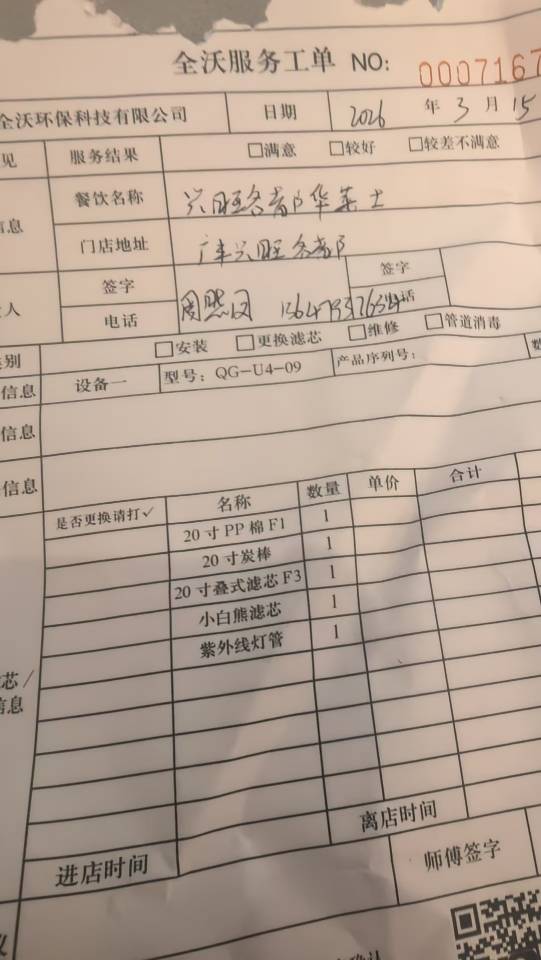 全沃服务工单 NO: 0007167
全沃环保科技有限公司 日期 2026 年 3 月 15
见 服务结果 □满意 □较好 □较差不满意
信息 餐饮名称 兴旺名都华莱士
门店地址 广丰兴旺名都
人 签字 签字
电话 电话
类别 □安装 □更换滤芯 □维修 □管道消毒
信息 设备一 型号：QG-U4-09 产品序列号： 数
信息
信息
是否更换请打✓ 名称 数量 单价 合计
20寸PP棉F1 1
20寸炭棒 1
20寸叠式滤芯F3 1
小白熊滤芯 1
紫外线灯管 1
芯/
信息
进店时间 离店时间
师傅签字
议
确认